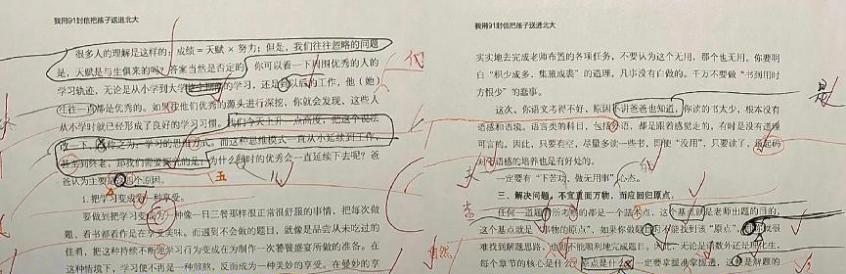 我用91封信把孩子送进北大
很多人的理解是这样的：成绩 = 天赋 × 努力；但是，我们往往忽略的问题
是，天赋是与生俱来的吗？答案当然是否定的。你可以看一下周围优秀的人的
学习轨迹，无论是从小学到大学的学习，还是到以后的工作，他（她）
往往一直都是优秀的。如果找他们优秀的源头进行深挖，你就会发现，这些人
从小学时就已经形成了良好的学习习惯。我们今天上升一点高度，把这个说法
改一下，称之为：学习的思维方式。而这种思维模式一直从小延续到工作，
甚至到终老。那我们需要探究的是：为什么小时的优秀会一直延续下去呢？爸
爸认为主要是个原因。
五
1.把学习变成一种享受。
要做到把学习变成为一种像一日三餐那样很正常很舒服的事情，把每次做
题、看书都看作是在享受美味。而遇到不会做的题目，就像是品尝从未吃过的
佳肴，把这种持续不断的学习行为变成在为制作一次饕餮盛宴所做的准备。在
这种情境下，学习便不再是一种煎熬，反而成为一种美妙的享受。在曼妙的享
我用91封信把孩子送进北大
实实地去完成老师布置的各项任务，不要认为这个无用，那个也无用，你要明
白“积少成多，集腋成裘”的道理，凡事没有白做的。千万不要做“书到用时
方恨少”的蠢事。
这次，你语文考得不好，原因不讲爸爸也知道，你读的书太少，根本没有
语感和语境。语言类的科目，包括外语，都是跟着感觉走的，有时是没有道理
可言的。因此，只要有空，尽量多读一些书，即使“没用”，只要读了，
对语感的培养也是有好处的。
一定要有“下苦功，做无用事”心态。
三、解决问题，不宜重面万物，而应回归原点。
任何一道题所考的都是一个基点，这个基点就是老师出题的目的，
这个基点就是“事物的原点”。如果你做题时不能找到该“原点”，你就很
难找到解题思路，也就不能顺利地完成题目。因此，无论是语数外还是理化生，
每个章节的核心是什么，原点是什么，一定要掌握准掌握透，这是解题的